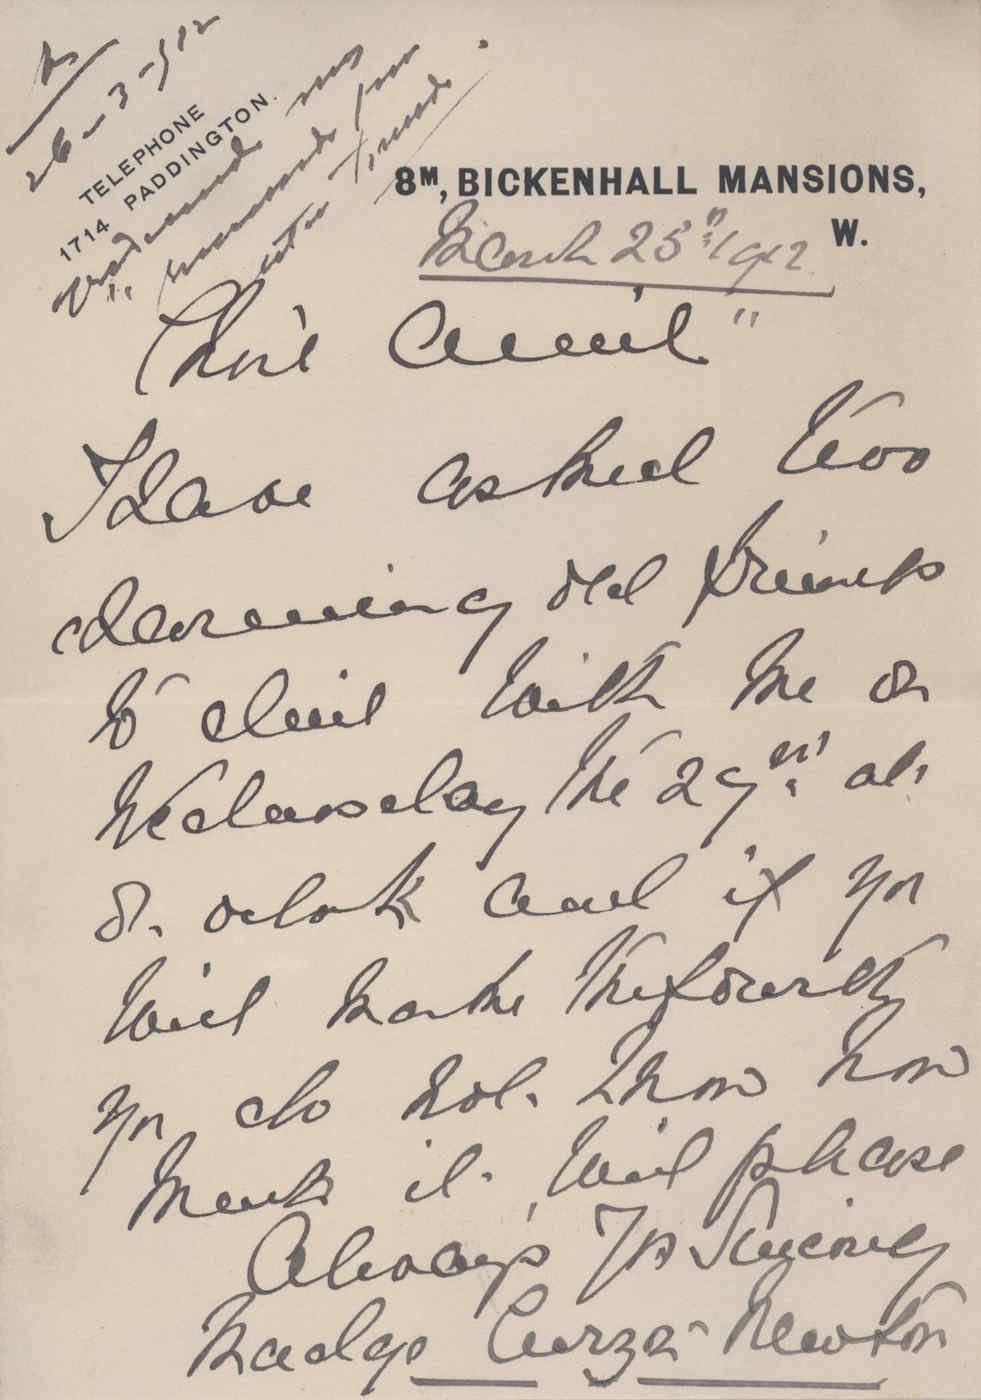 26-3-912
TELEPHONE
1714 PADDINGTON.
8M, BICKENHALL MANSIONS,
W.
March 25th 1912
"Chère Amie"
I have asked two
charming old friends
to dine with me on
Wednesday the 29th at
8. oclock and if you
will make the fourth
you do not know how
much it will please
Always Yrs Sincerely
Madge Curzon Newton